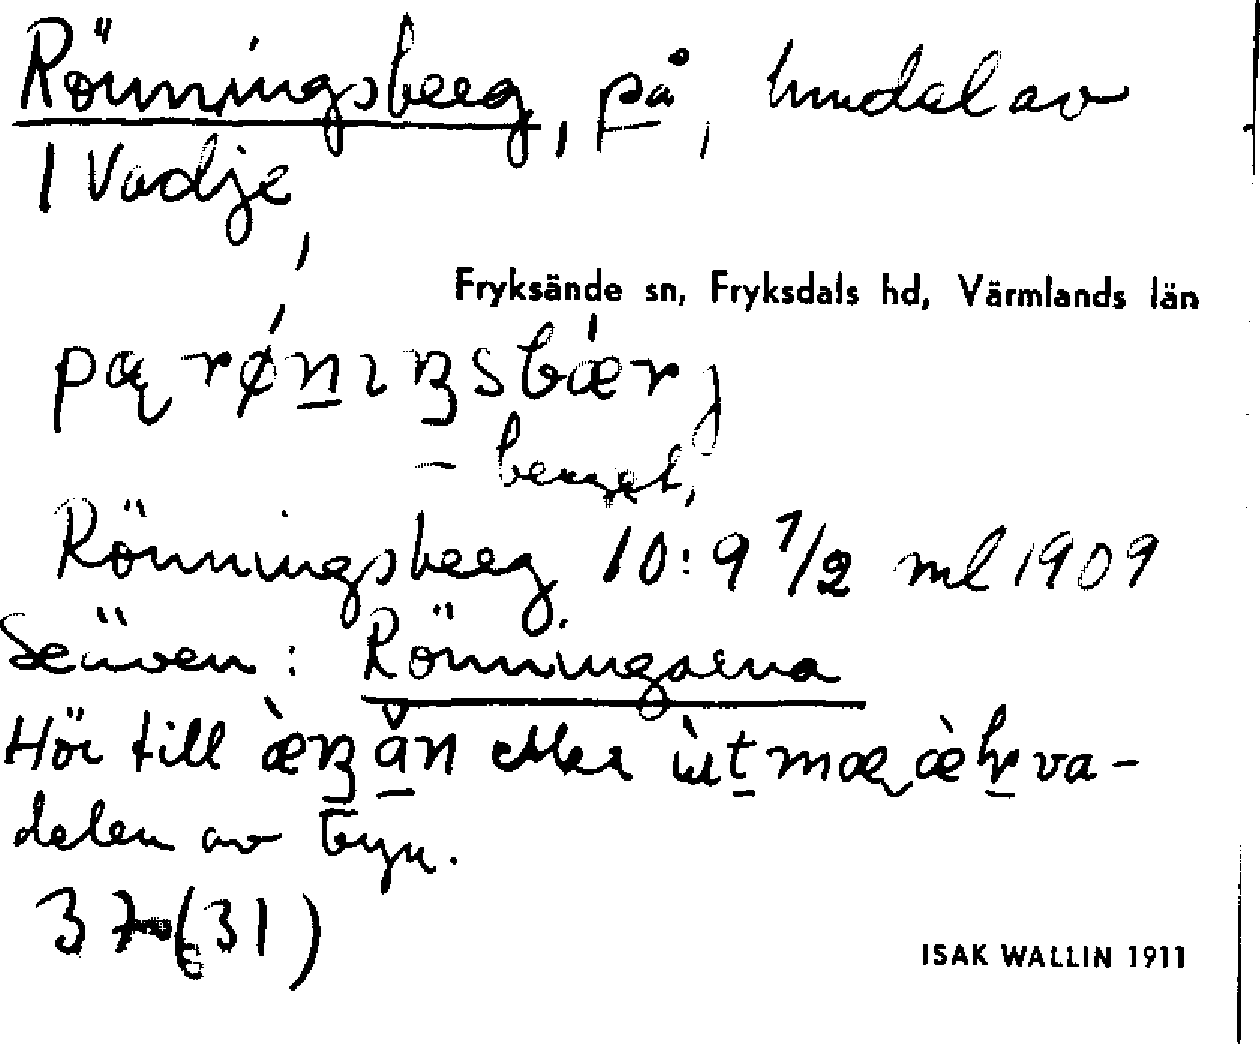 Rönningsberg, på, hmdel av
1 Vadje,
Fryksände sn, Fryksdals hd, Värmlands län
pɑ rǿnıŋsbær j
– berget,
Rönningsberg. 10:9 7/2 ml 1909
Även: Rönningarna
Hör till æŋ ån eller ùt mæ æḷva-
delen av byn.
37 (31)
ISAK WALLIN 1911